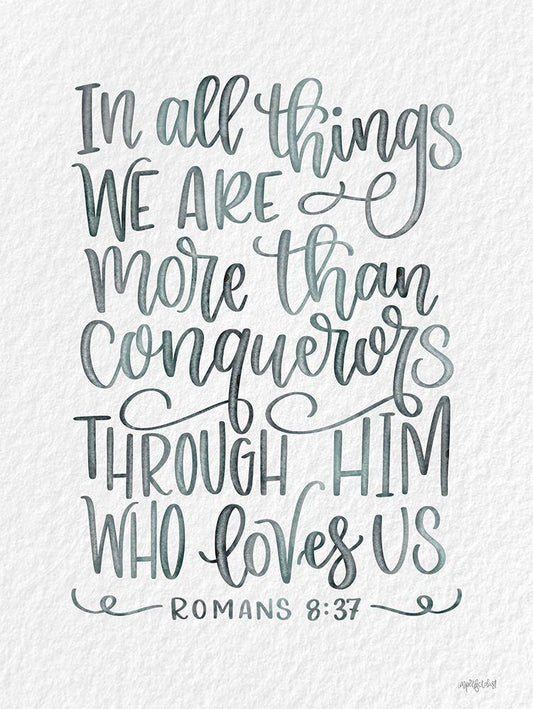 In all things
WE ARE
more than
conquerors
THROUGH HIM
WHO loves US
ROMANS 8:37